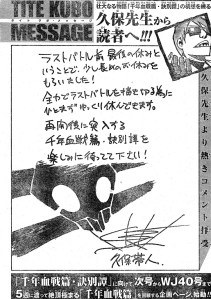 TITE KUBO
MESSAGE
壮大なる物語「千年血戦篇・訣別譚」の現想を綴る
久保先生から
読者へ!!!
ラストバトル前 最後の休みと
いうことで、少し長めのお休みを
もらいました!
全力でラストバトルを描きてやる為に
ひとまずゆっくり休んできます。
再開後に突入する
千年血戦篇・訣別譚を
楽しみに待ってて下さい!
久保帯人
久保先生より熱きコメント拝受
「千年血戦篇・訣別譚」に向けて次号からWJ40号まで
5週に渡って絶頂極まる「千年血戦篇」を回顧する企画ページ、始動!!